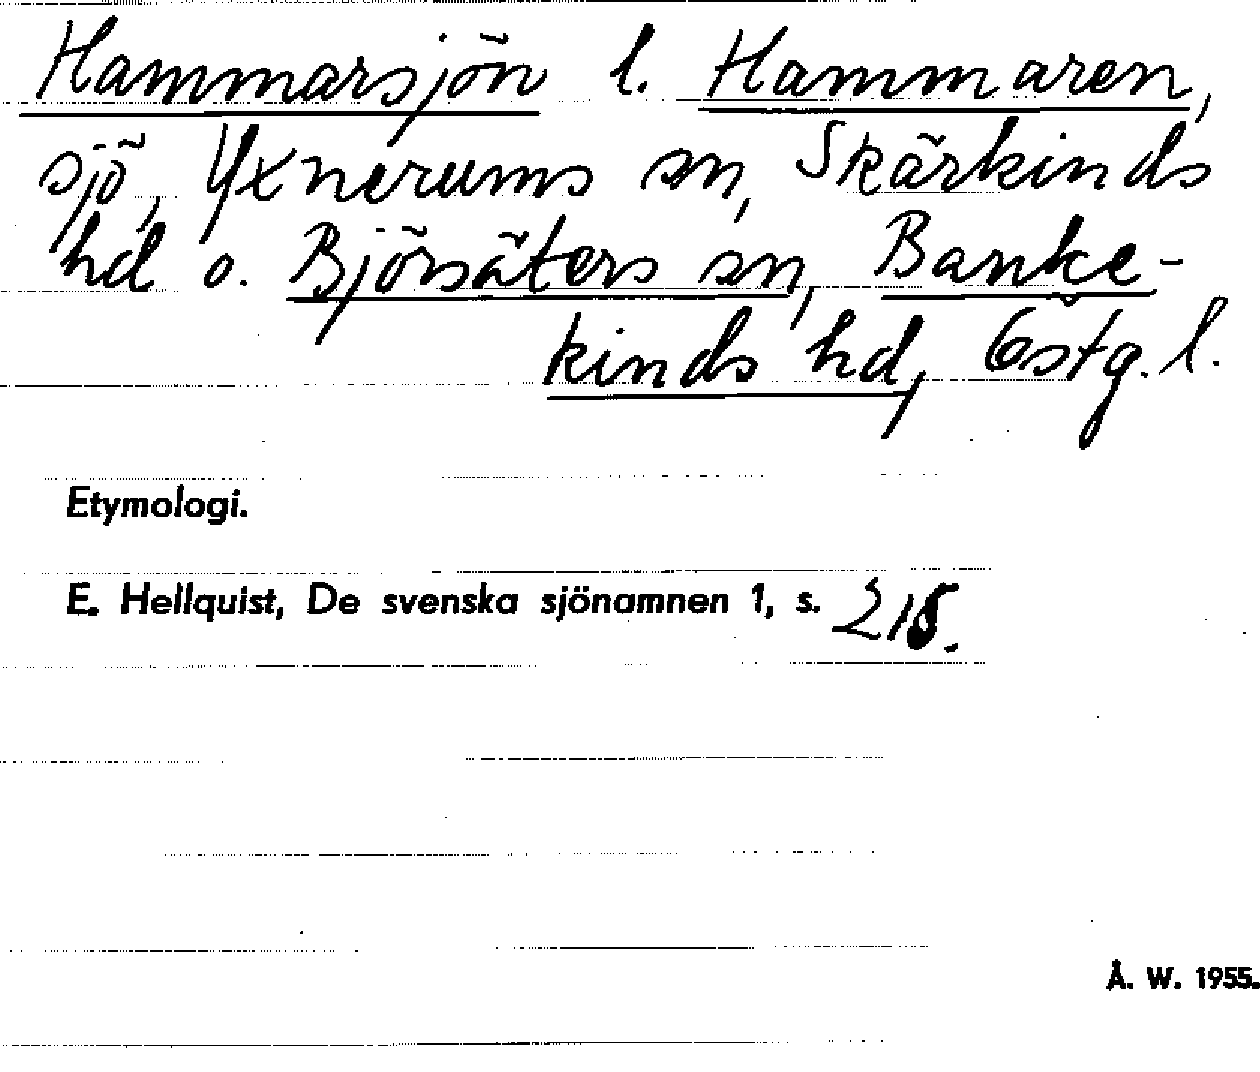 Hammarsjön l. Hammaren,
sjö, Yxnerums sn, Skärkinds
hd o. Björsäters sn, Banke-
kinds hd, Östg. l.
Etymologi.
E. Hellquist, De svenska sjönamnen 1, s. 218.
Å. W. 1955.